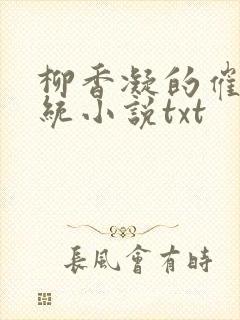 柳香凝的催
统小說txt
長風會有時